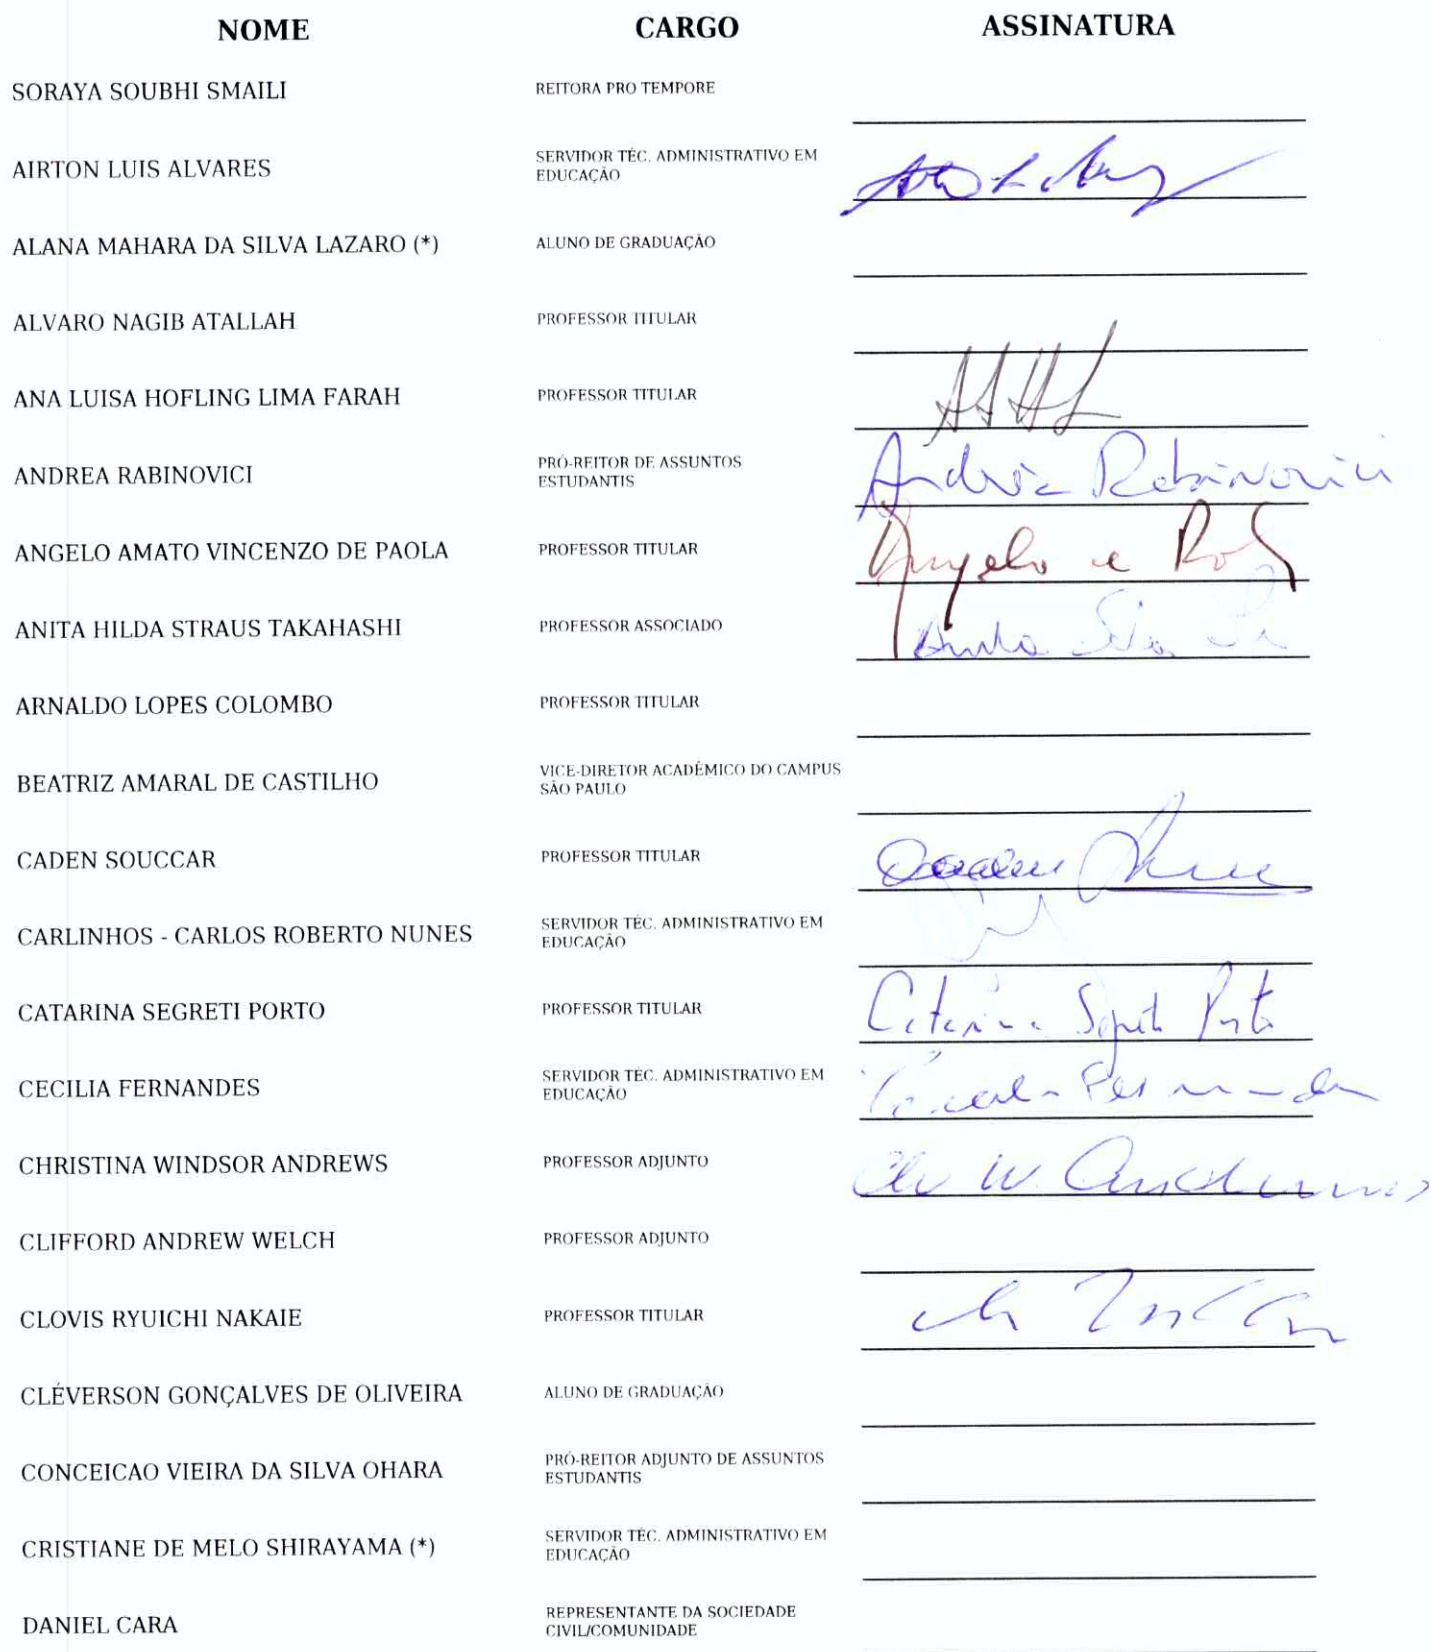 NOME CARGO ASSINATURA
SORAYA SOUBHI SMAILI REITORA PRO TEMPORE
AIRTON LUIS ALVARES SERVIDOR TÉC. ADMINISTRATIVO EM
EDUCAÇÃO
ALANA MAHARA DA SILVA LAZARO (*) ALUNO DE GRADUAÇÃO
ALVARO NAGIB ATALLAH PROFESSOR TITULAR
ANA LUISA HOFLING LIMA FARAH PROFESSOR TITULAR
ANDREA RABINOVICI PRÓ-REITOR DE ASSUNTOS
ESTUDANTIS
Andrea Rabinovici
ANGELO AMATO VINCENZO DE PAOLA PROFESSOR TITULAR
Angelo
ANITA HILDA STRAUS TAKAHASHI PROFESSOR ASSOCIADO
ARNALDO LOPES COLOMBO PROFESSOR TITULAR
BEATRIZ AMARAL DE CASTILHO VICE-DIRETOR ACADÊMICO DO CAMPUS
SÃO PAULO
CADEN SOUCCAR PROFESSOR TITULAR
CARLINHOS - CARLOS ROBERTO NUNES SERVIDOR TÉC. ADMINISTRATIVO EM
EDUCAÇÃO
CATARINA SEGRETI PORTO PROFESSOR TITULAR
Catarina Segreti Porto
CECILIA FERNANDES SERVIDOR TÉC. ADMINISTRATIVO EM
EDUCAÇÃO
Cecilia Fernandes
CHRISTINA WINDSOR ANDREWS PROFESSOR ADJUNTO
W. Andrews
CLIFFORD ANDREW WELCH PROFESSOR ADJUNTO
CLOVIS RYUICHI NAKAIE PROFESSOR TITULAR
CLÉVERSON GONÇALVES DE OLIVEIRA ALUNO DE GRADUAÇÃO
CONCEICAO VIEIRA DA SILVA OHARA PRÓ-REITOR ADJUNTO DE ASSUNTOS
ESTUDANTIS
CRISTIANE DE MELO SHIRAYAMA (*) SERVIDOR TÉC. ADMINISTRATIVO EM
EDUCAÇÃO
DANIEL CARA REPRESENTANTE DA SOCIEDADE
CIVIL/COMUNIDADE